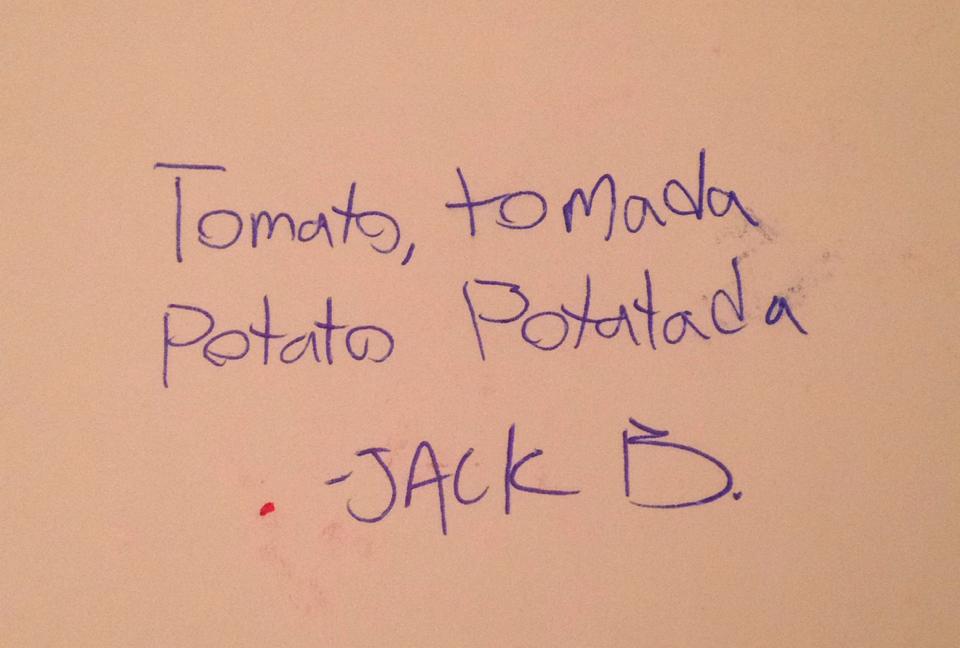 Tomato, tomada
Potato Potatada
-JACK B.